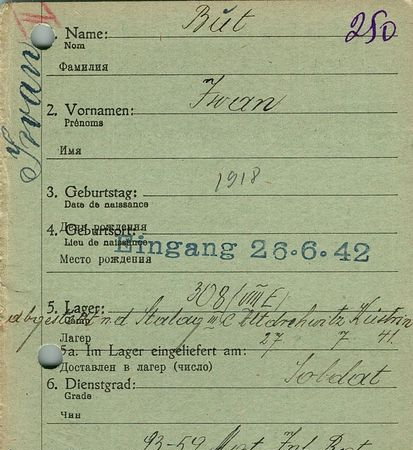 Bŭt
250
1. Name:
Nom
Фамилия
Iwan
2. Vornamen:
Prénoms
Имя
Iwan
1918
3. Geburtstag:
Date de naissance
День рождения
4. Geburtsort:
Lieu de naissance
Место рождения
Eingang 26.6.42
308 (VIII E)
5. Lager:
Camp
abgestellt nd Stalag III C Altdrewitz Küstrin
Лагер
27 7 41
5a. Im Lager eingeliefert am:
Доставлен в лагер (число)
Soldat
6. Dienstgrad:
Grade
Чин